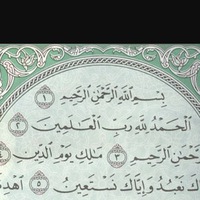 بِسْمِ ٱللَّهِ ٱلرَّحْمَٰنِ ٱلرَّحِيمِ ١
ٱلْحَمْدُ لِلَّهِ رَبِّ ٱلْعَٰلَمِينَ ٢
ٱلرَّحْمَٰنِ ٱلرَّحِيمِ ٣ مَٰلِكِ يَوْمِ ٱلدِّينِ ٤
نَعْبُدُ وَإِيَّاكَ نَسْتَعِينُ ٥